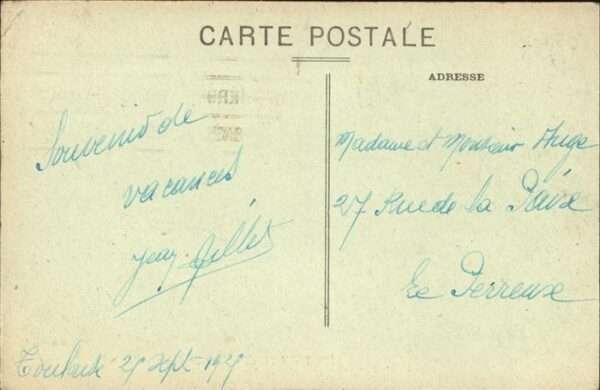 CARTE POSTALE
ADRESSE
Souvenir de
vacances
Jean Gillet
Madame et Monsieur Auge
27 Rue de la Paix
Le Perreux
Toulouse Sept.